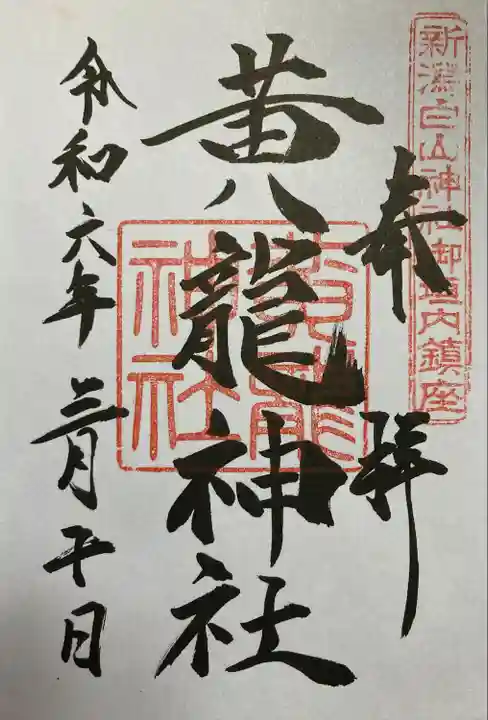 新潟白山神社御垣内鎮座
奉拝
黄龍神社
黄龍神社
令和六年三月二十日